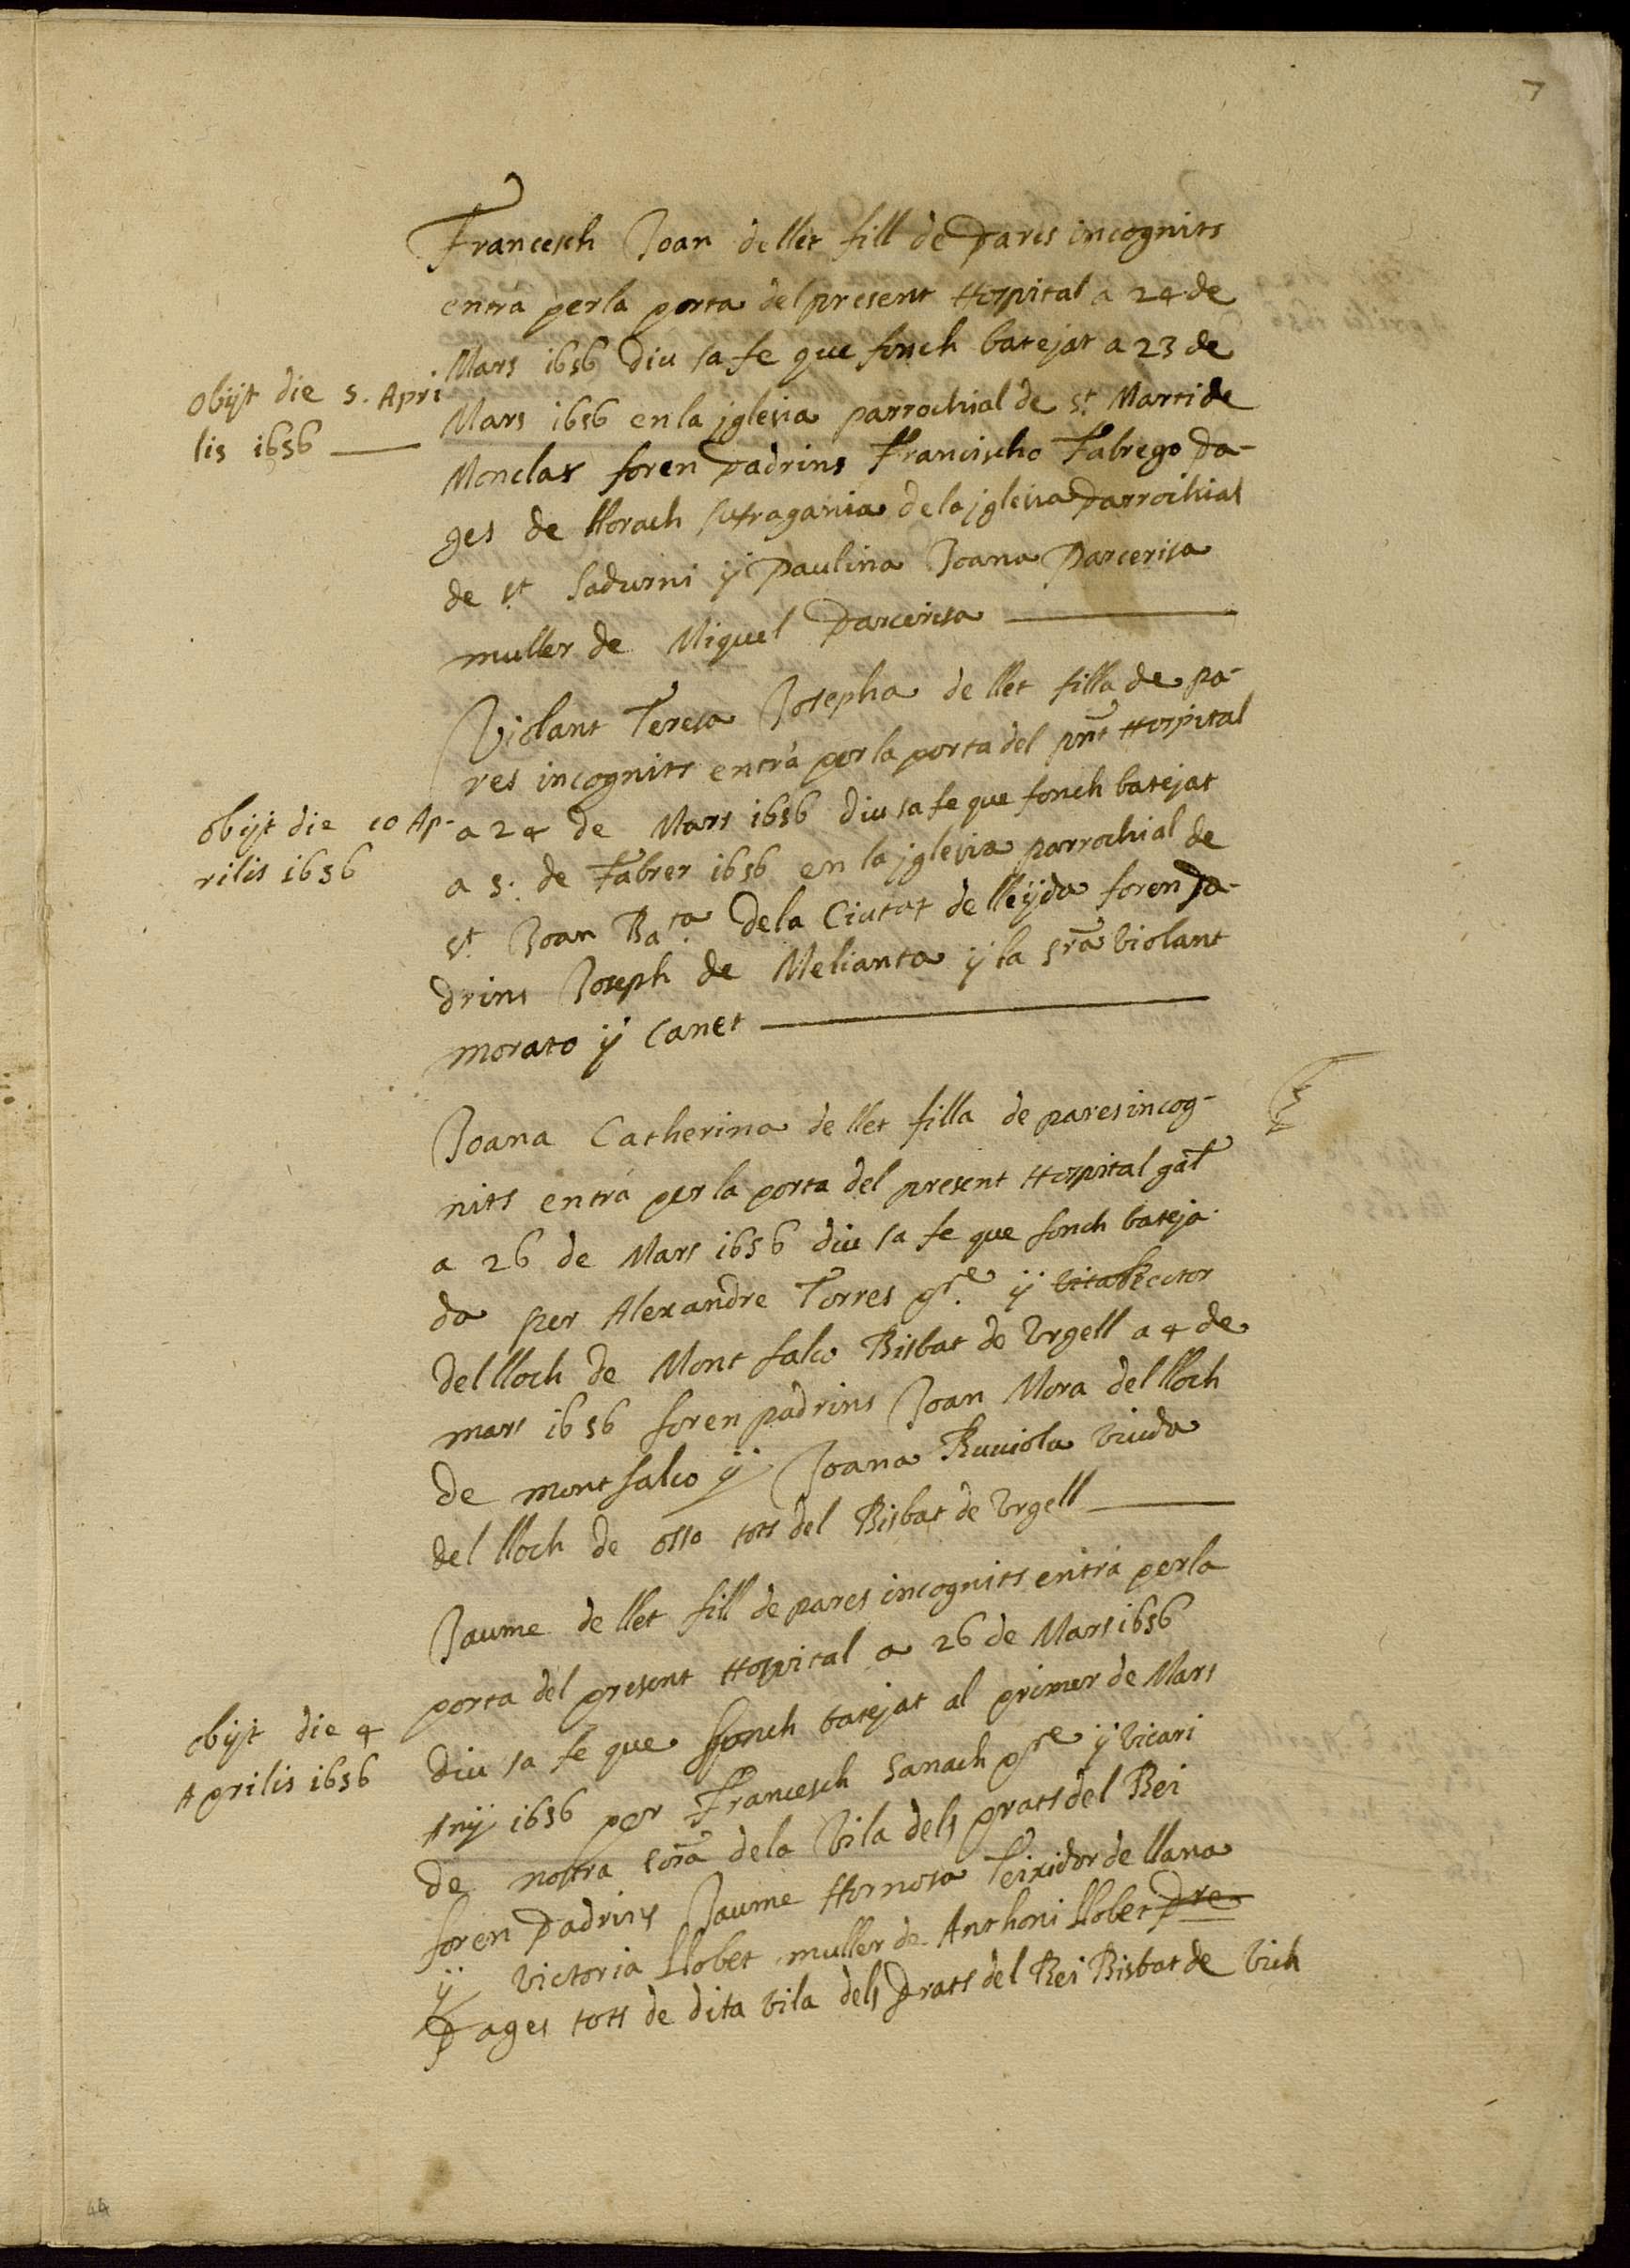 7
Francesch Joan de llet fill de Pares incognits
entrà per la porta del present Hospital a 24 de
Mars 1656 diu sa fe que fonch batejat a 23 de
Obijt die 5. Apri
lis 1656
Mars 1656 en la jglesia parrochial de St. Marti de
Monclar foren Padrins Francischo Fabrego Pa-
ges de llorach sufragania de la jglesia Parrochial
de st. Sadurni ÿ Paulina Joana Parcerisa
muller de Miquel Parcerisa
Violant Teresa Josepha de llet filla de pa-
res incognits entrà per la porta del pnt Hospital
Obijt die 10 Ap-
rilis 1656
a 24 de Mars 1656 diu sa fe que fonch batejat
a 5. de Fabrer 1656 en la jglesia parrochial de
st. Joan Bata. de la Ciutat de lleÿda foren Pa-
drins Joseph de Melianta ÿ la sra violant
morato ÿ Canet
Joana Catherina de llet filla de pares incog-
nits entrà per la porta del present Hospital gal
a 26 de Mars 1656 diu sa fe que fonch bateja-
da per Alexandre Torres pre. ÿ Rector
del lloch de Mont falco Bisbat de Vrgell a 4 de
mars 1656 foren padrins Joan Mora del lloch
de montfalco ÿ Joana Ruuiola viuda
del lloch de osso tots del Bisbat de Vrgell
Jaume de llet fill de pares incognits entrà per la
porta del present Hospital a 26 de Mars 1656
obijt die 4
Aprilis 1656
diu sa fe que fonch batejat al primer de Mars
Anÿ 1656 per Francesch Sanach pre ÿ vicari
de nostra sora de la Vila dels prats del Rei
foren Padrins Jaume Hornosa Teixidor de llana
ÿ Victoria Llobet muller de Anthoni Llobet Pre
Pages tots de dita vila dels Prats del Rei Bisbat de Vich
44